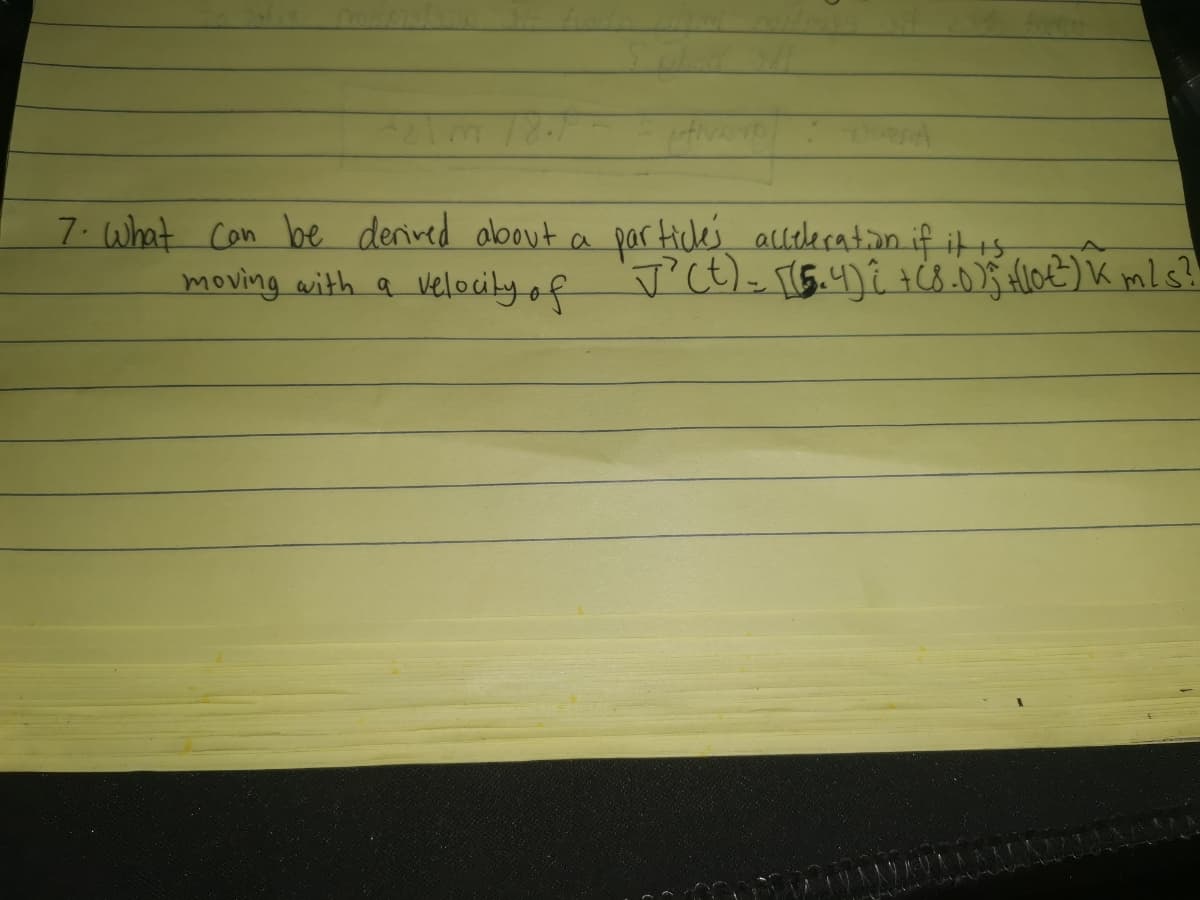 7. What can be derived about a particle's acceleration if it is
moving with a velocity of v⃗(t) = [(5.4)î + (8.0)ĵ + (10t²)k̂ m/s?